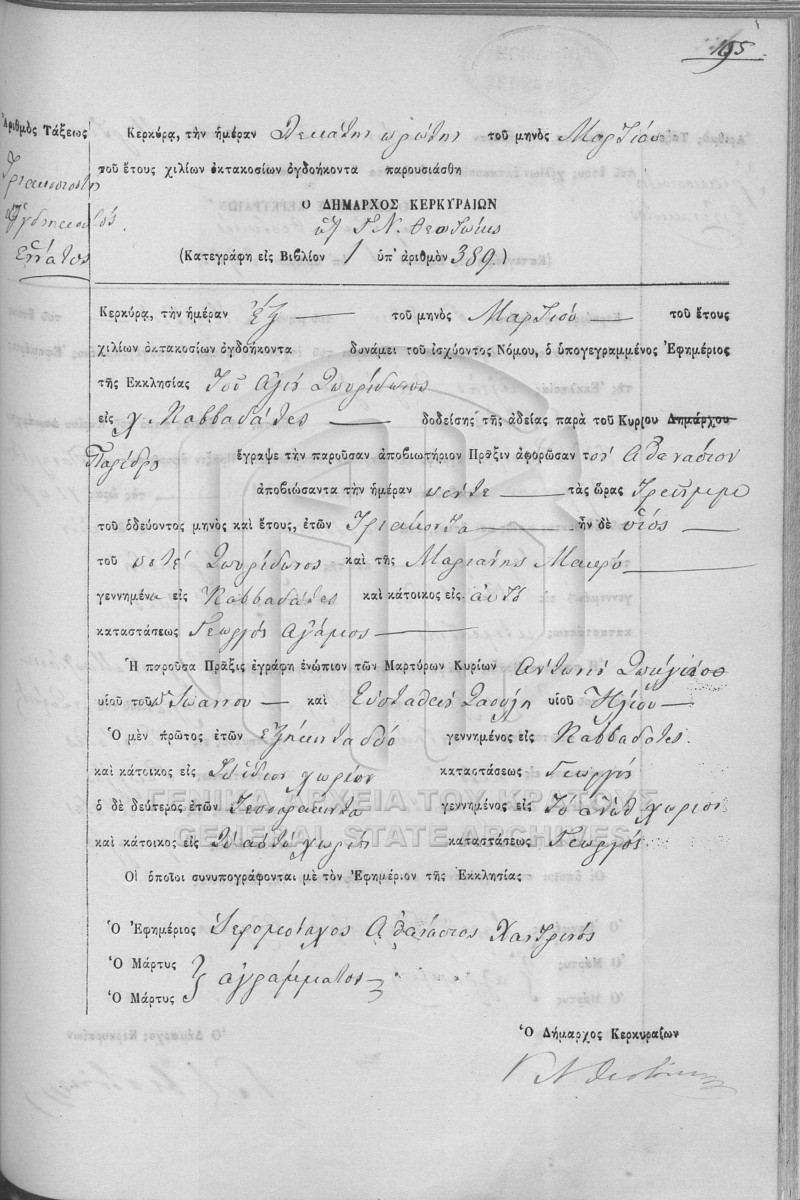 195
Ἀριθμὸς Τάξεως
Τριακοσιοστὸς
Ὀγδοηκοστός
Ἔννατος
Κερκύρα, τὴν ἡμέραν Δεκάτην πρώτην τοῦ μηνὸς Μαρτίου
τοῦ ἔτους χιλίων ὀκτακοσίων ὀγδοήκοντα παρουσιάσθη
Ὁ ΔΗΜΑΡΧΟΣ ΚΕΡΚΥΡΑΙΩΝ
Γ Ν. Θεοτόκης
(Κατεγράφη εἰς Βιβλίον 1 ὑπ' ἀριθμὸν 389.)
Κερκύρα, τὴν ἡμέραν ἕξ τοῦ μηνὸς Μαρτίου τοῦ ἔτους
χιλίων ὀκτακοσίων ὀγδοήκοντα δυνάμει τοῦ ἰσχύοντος Νόμου, ὁ ὑπογεγραμμένος Ἐφημέριος
τῆς Ἐκκλησίας Τοῦ Αγίου Σπυρίδωνος
εἰς χ. Καββαδάτες δοθείσης τῆς ἀδείας παρὰ τοῦ Κυρίου Δημάρχου
Παρέδρου ἔγραψε τὴν παροῦσαν ἀποβιωτήριον Πρᾶξιν ἀφορῶσαν τὸν Αθανάσιον
ἀποβιώσαντα τὴν ἡμέραν πέντε τὰς ὥρας Τρεῖς π.μ.
τοῦ ὁδεύοντος μηνὸς καὶ ἔτους, ἐτῶν Τριάκοντα ἦν δὲ υἱός
τοῦ ποτέ Σπυρίδωνος καὶ τῆς Μαριάνης Μακρή
γεννημένα εἰς Καββαδάτες καὶ κάτοικος εἰς αὐτό
καταστάσεως Γεωργός Αγαμος
Ἡ παροῦσα Πρᾶξις ἐγράφη ἐνώπιον τῶν Μαρτύρων Κυρίων Αντωνίου
υἱοῦ τοῦ Ἰωάννου καὶ Εὐσταθίου Σαούλη υἱοῦ Ἠλίου
Ὁ μὲν πρῶτος ἐτῶν ἑξήκοντα δύο γεννημένος εἰς Καββαδάτες
καὶ κάτοικος εἰς Τὸ ἴδιον χωρίον καταστάσεως Γεωργός
ὁ δὲ δεύτερος ἐτῶν Τεσσαράκοντα γεννημένος εἰς Τὸ ἄνωθ χωρίον
καὶ κάτοικος εἰς Τὸ αὐτό χωρίον καταστάσεως Γεωργός
Οἱ ὁποῖοι συνυπογράφονται μὲ τὸν Ἐφημέριον τῆς Ἐκκλησίας
Ὁ Ἐφημέριος Ἱερομόναχος Αθανάσιος
Ὁ Μάρτυς
αγράμματοι
Ὁ Μάρτυς
Ὁ Δήμαρχος Κερκυραίων
Γ Ν Θεοτόκης
ΓΕΝΙΚΑ ΑΡΧΕΙΑ ΤΟΥ ΚΡΑΤΟΥΣ
GENERAL STATE ARCHIVES